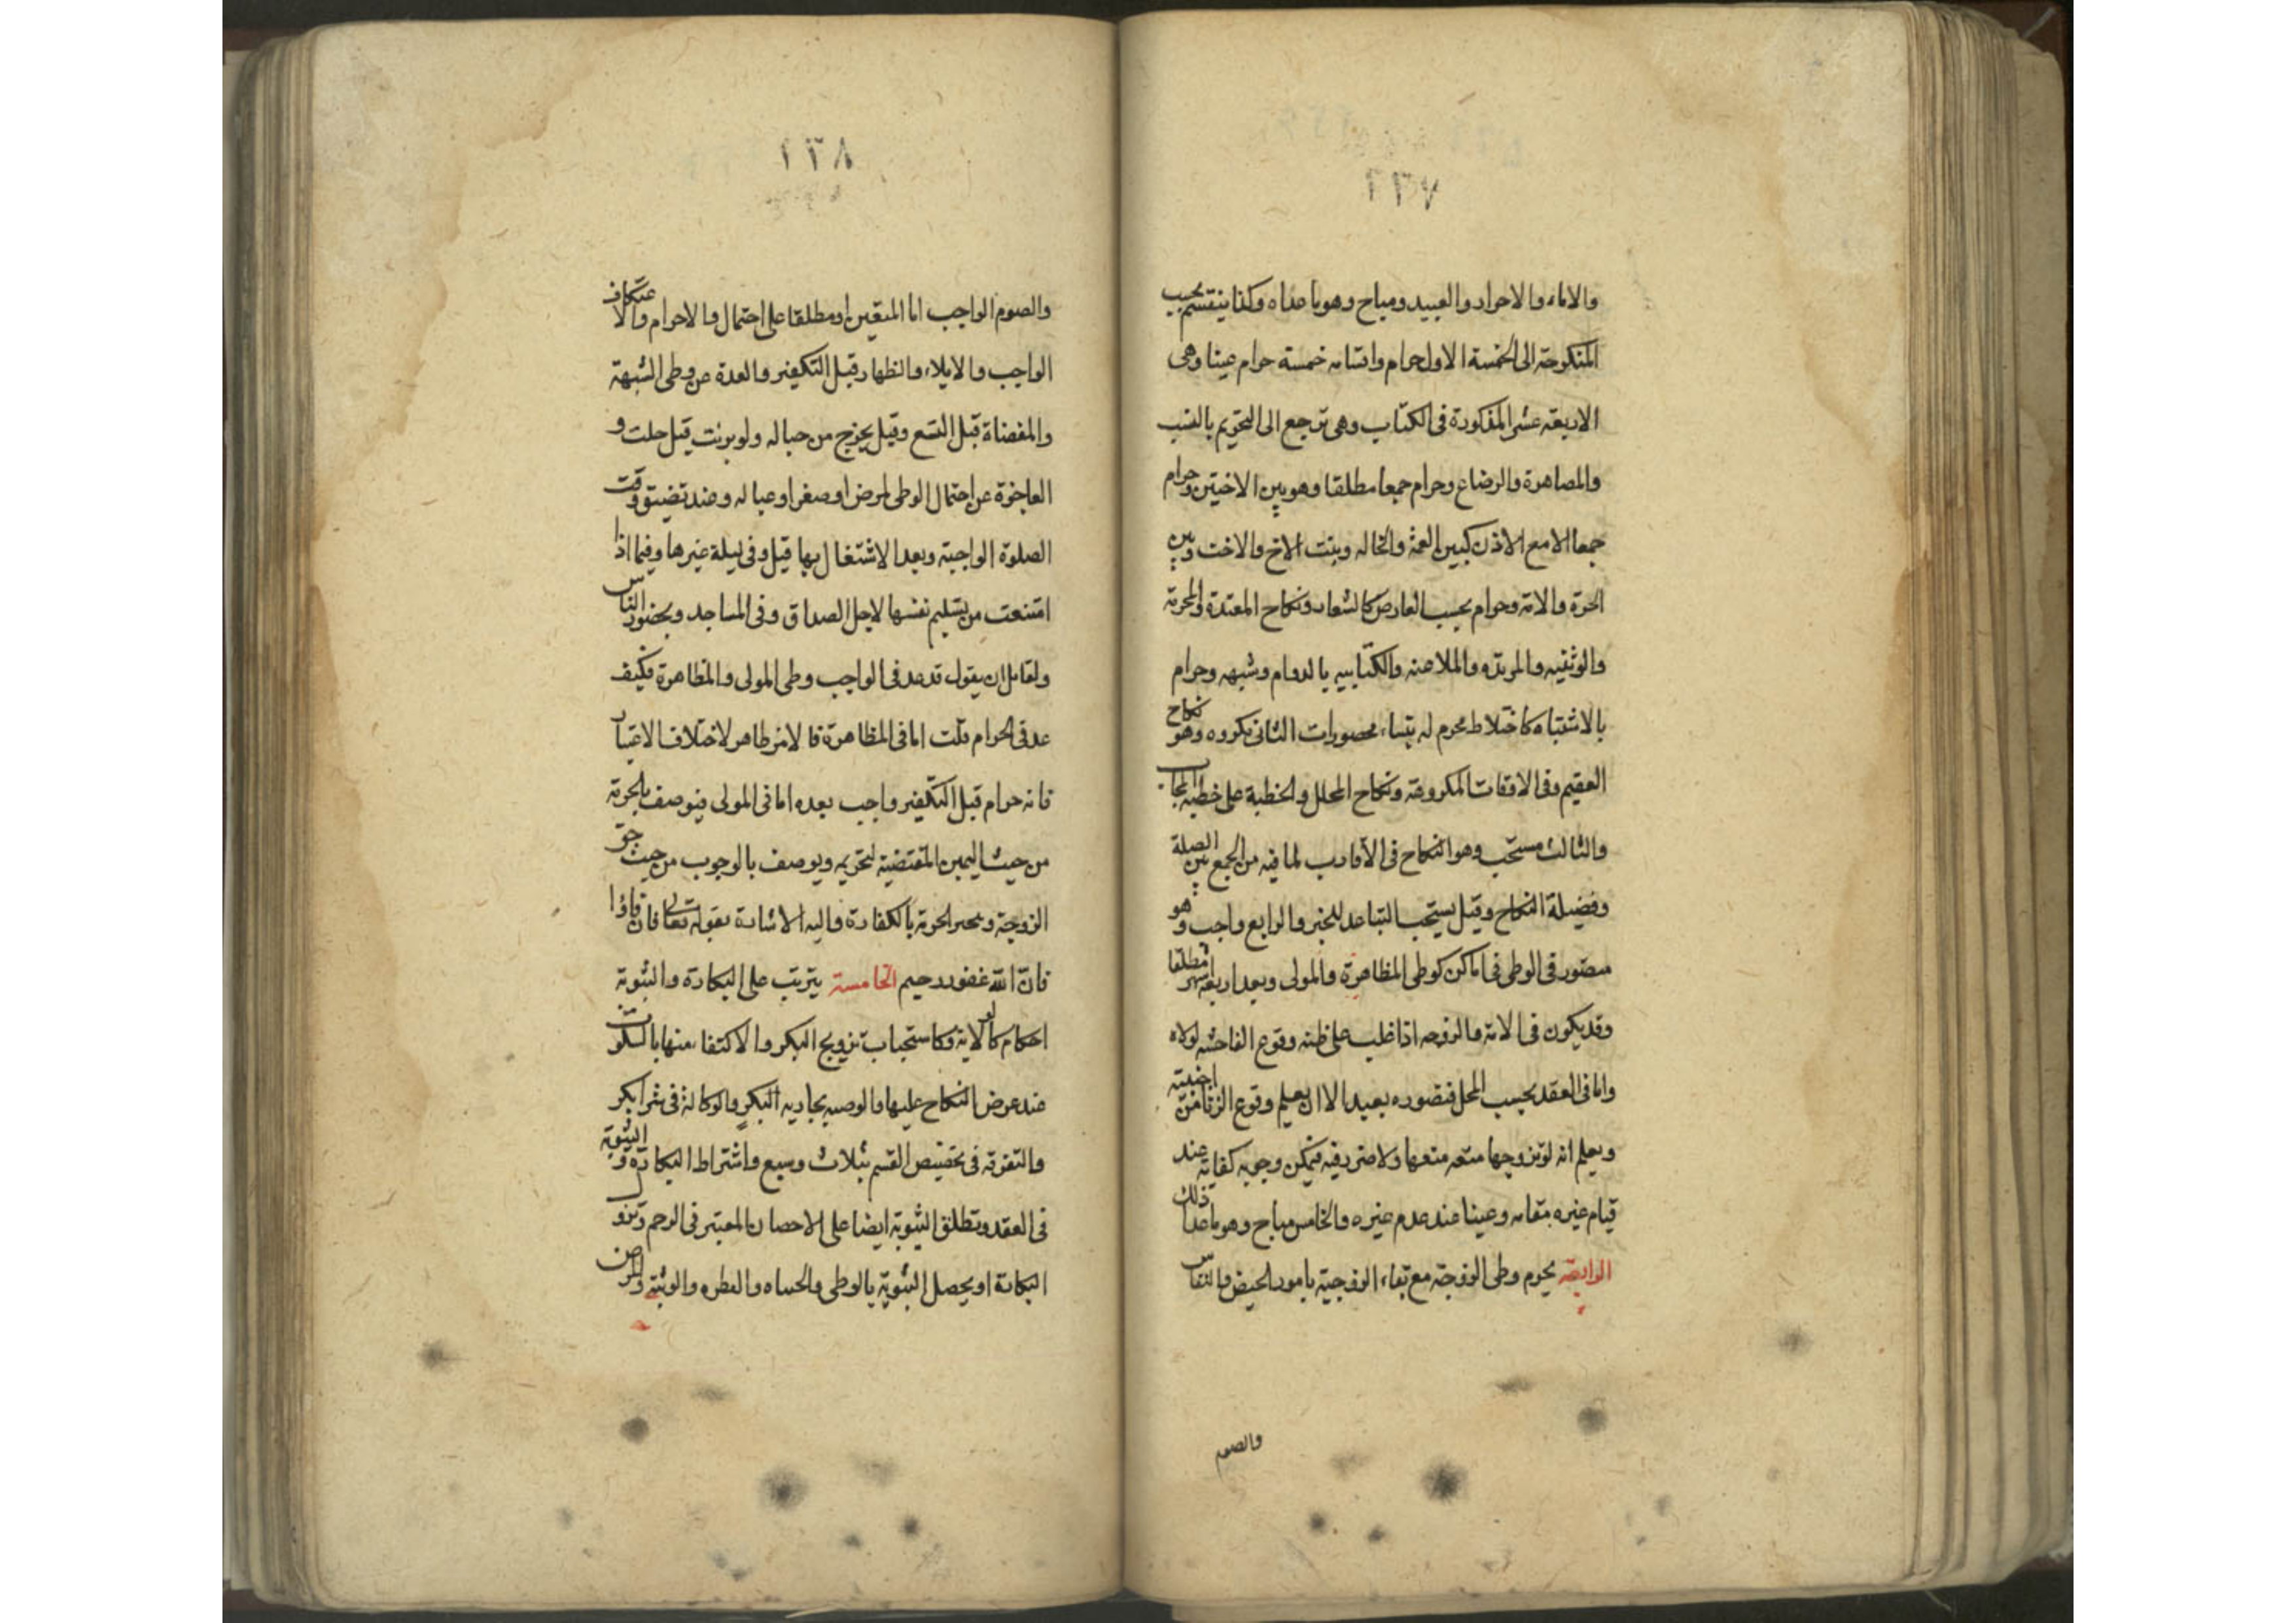 ٢٣٧
والاماء والاحرار والعبيد ومباح وهو ما عداه وكذا ينقسم بحسب
المنكوحة الى الخمسة الاول حرام واقسامه خمسة حرام عينا وهى
الاربعة عشر المذكورة فى الكتاب وهى ترجع الى التحريم بالنسب
والمصاهرة والرضاع وحرام جمعا مطلقا وهو بين الاختين وحرام
جمعا الا مع الاذن كبين العمة والخاله وبنت الاخ والاخت وبين
الحرة والامة وحرام بحسب العارض كالشغار ونكاح المعتدة والمحرمة
والوثنيه والمرتده والملاعنه والكتابيه بالدوام وشبهه وحرام
بالاشتباه كاختلاط محرم له بنساء محصورات الثانى مكروه وهو نكاح
العقيم وفى الاوقات المكروهة ونكاح المحلل والخطبة على خطبة المجاب
والثالث مستحب وهو النكاح فى الاقارب لما فيه من الجمع بين الصلة
وفضيلة النكاح وقيل يستحب التباعد للخبر والرابع واجب وهو
متصور فى الوطى فى اماكن كوطى المظاهرة والمولى وبعد اربعة اشهر مطلقا
وقد يكون فى الامة والزوجه اذا غلب على ظنه وقوع الفاحشه لولاه
واما فى العقد بحسب المحل فتصوره بعيد الا ان يعلم وقوع الزنا من اجنبية
ويعلم انه لو تزوجها متعه منعها ولا ضرر فيه فيمكن وجوبه كفاية عند
قيام غيره مقامه وعينا عند عدم غيره والخامس مباح وهو ما عدا ذلك
الرابعة يحرم وطى الزوجة مع بقاء الزوجية بامور الحيض والنفاس
والصوم
٢٣٨
والصوم الواجب اما المتعين او مطلقا على احتمال والاحرام والاعتكاف
الواجب والايلاء والظهار قبل التكفير والعدة عن وطى الشبهة
والمفضاة قبل التسع وقيل يخرج من حباله ولو برئت قيل حلت و
العاجزة عن احتمال الوطى لمرض او صغر او عباله وعند تضيق وقت
الصلوة الواجبة وبعد الاشتغال بها قيل وفى ليلة غيرها وفيما اذا
امتنعت من تسليم نفسها لاجل الصداق وفى المساجد وبحضور الناس
ولقايل ان يقول قد عد فى الواجب وطى المولى والمظاهرة فكيف
عد فى الحرام قلت اما فى المظاهرة فالامر ظاهر لاختلاف الاعتبار
فانه حرام قبل التكفير واجب بعده اما فى المولى فيوصف بالحرمة
من حيث اليمين المقتضية لتحريمه ويوصف بالوجوب من حيث حق
الزوجية وبجبر الحرمة بالكفارة واليه الاشارة بقوله تعالى فان فاؤا
فان الله غفور رحيم الخامسة يترتب على البكارة والثيوبة
احكام كالولاية وكاستحباب تزويج البكر والاكتفاء منها بالسكوت
عند عرض النكاح عليها والوصيه بجاريه البكر والوكالة فى شرا بكر
والتفرقة فى تخصيص القسم بثلاث وسبع واشتراط البكارة و الثيوبة
فى العقد وتطلق الثيوبة ايضا على الاحصان المعتبر فى الرجم وتزول
البكارة او يحصل الثيوبة بالوطى والطفره والوثبة والمرض